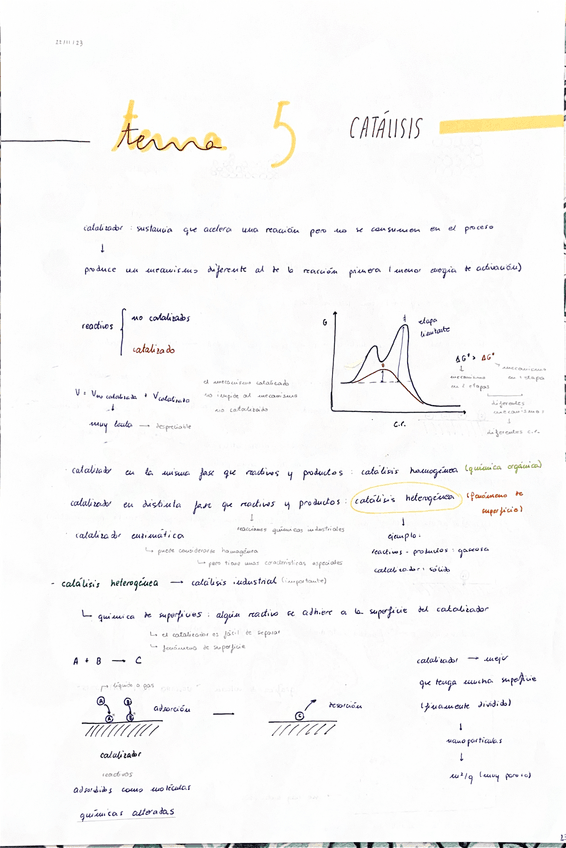 22/11/23
tema 5 CATÁLISIS
catalizador : sustancia que acelera una reacción pero no se consumen en el proceso
↓
produce un mecanismo diferente al de la reacción primera (menor energía de activación)
reactivos
no catalizados
catalizado
G
etapa
limitante
C.r.
ΔG° > ΔG°
mecanismo
en 2 etapas
mecanismo
en 1 etapa
diferentes
mecanismos
↓
diferentes c.r.
V = Vno catalizada + Vcatalizada
↓
muy lenta → despreciable
el mecanismo catalizado
no impide al mecanismo
no catalizado
catalizador en la misma fase que reactivos y productos : catálisis homogénea (química orgánica)
catalizador en distinta fase que reactivos y productos : catálisis heterogénea (fenómeno de superficie)
↓
reacciones químicas industriales
ejemplo:
reactivos - productos : gaseosa
catalizador : sólido
· catalizador enzimática
↳ puede considerarse homogénea
↳ pero tiene unas características especiales
- catálisis heterogénea → catálisis industrial (importante)
↳ química de superficies : algún reactivo se adhiere a la superficie del catalizador
↳ el catalizador es fácil de separar
↳ fenómeno de superficie
A + B → C
líquido o gas
A B
A B
adsorción
C
desorción
catalizador
reactivos
adsorbidos como moléculas
químicas alteradas
catalizador → mejor
que tenga mucha superficie
(finamente dividido)
↓
nanopartículas
↓
m²/g